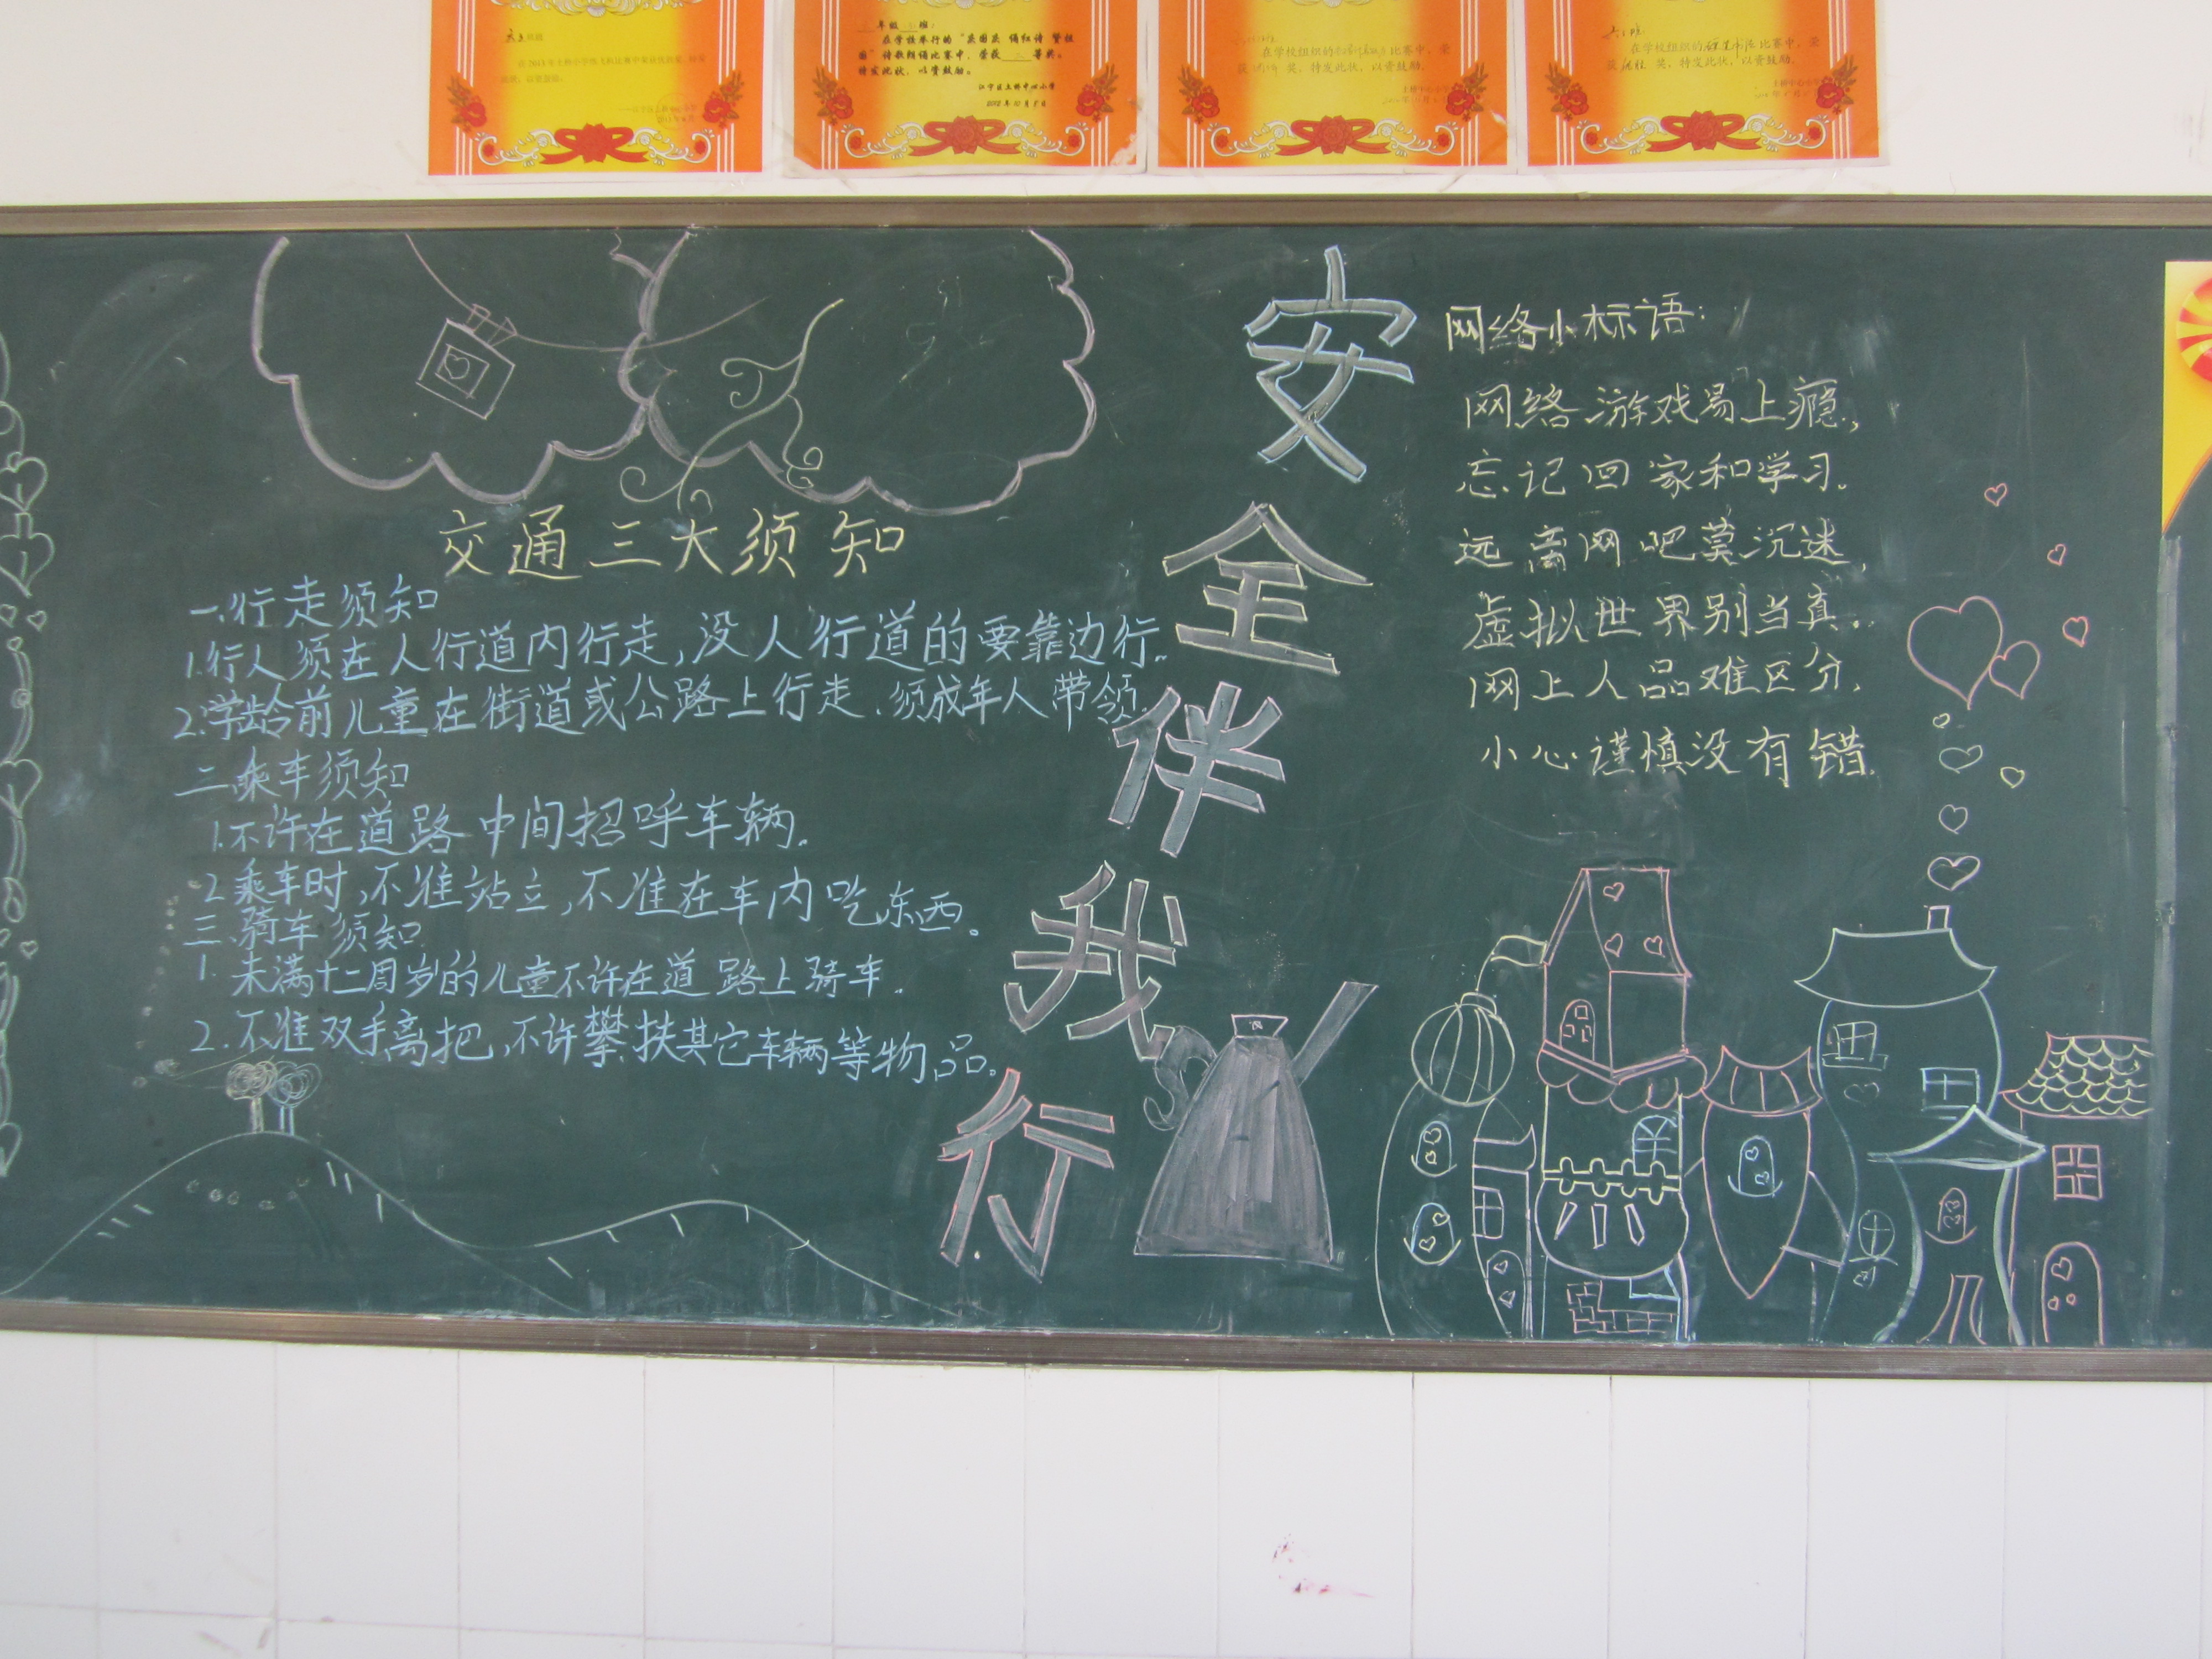 年级
班:
在学校举行的“爱国我 诵红诗 赞祖
国”诗歌朗诵比赛中,荣获 二 等奖。
特发此状,以资鼓励。
江宁区上桥中心小学
2012年10月8日
在学校组织的
比赛中,荣
获
奖,特发此状,以资鼓励。
在学校组织的硬笔书法比赛中,荣
获
奖,特发此状,以资鼓励。
安全伴我行
交通三大须知
一.行走须知
1.行人须在人行道内行走,没人行道的要靠边行.
2.学龄前儿童在街道或公路上行走.须成年人带领.
二.乘车须知
1.不许在道路中间招呼车辆.
2.乘车时,不准站立,不准在车内吃东西。
三.骑车须知
1.未满十二周岁的儿童不许在道路上骑车.
2.不准双手离把,不许攀扶其它车辆等物品。
网络小标语:
网络游戏易上瘾,
忘记回家和学习。
远离网吧莫沉迷,
虚拟世界别当真。
网上人品难区分,
小心谨慎没有错.